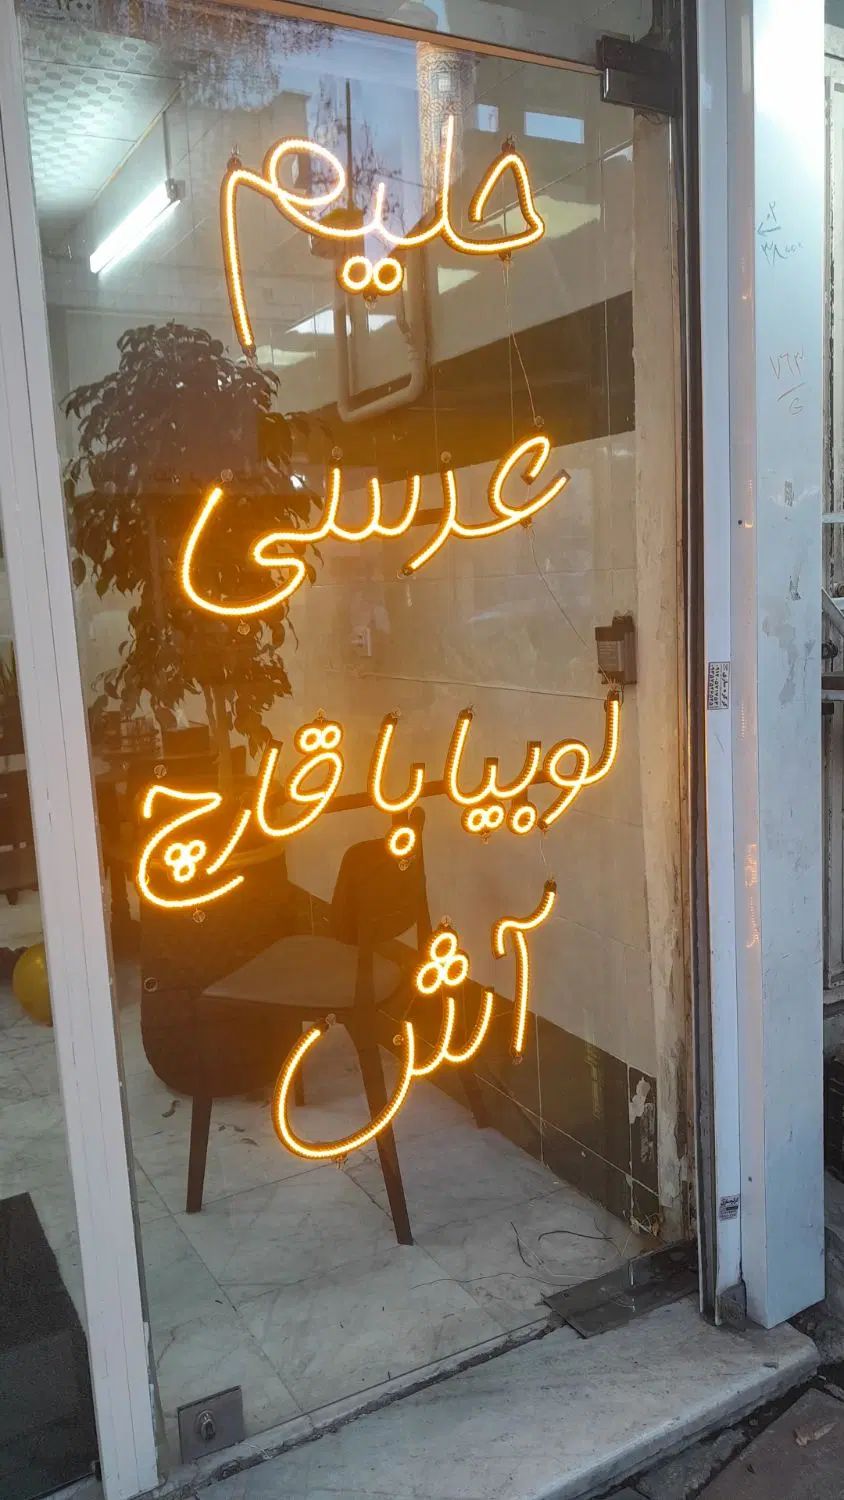 حلیم
عدسی
لوبیا با قارچ
آش